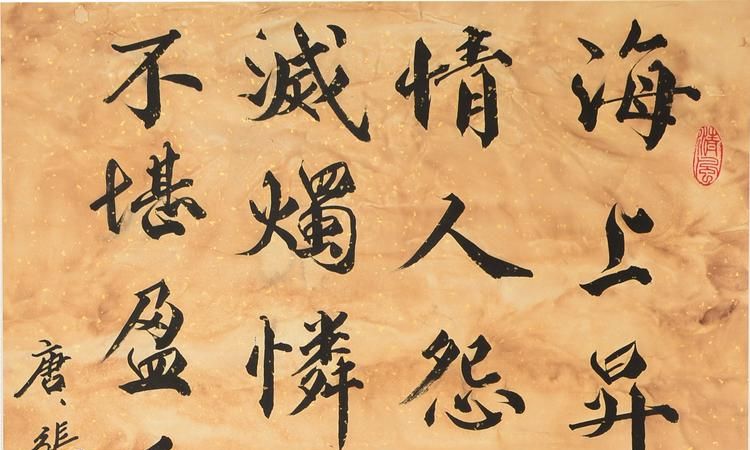 清風
海上昇
情人怨
滅燭憐
不堪盈
唐、張